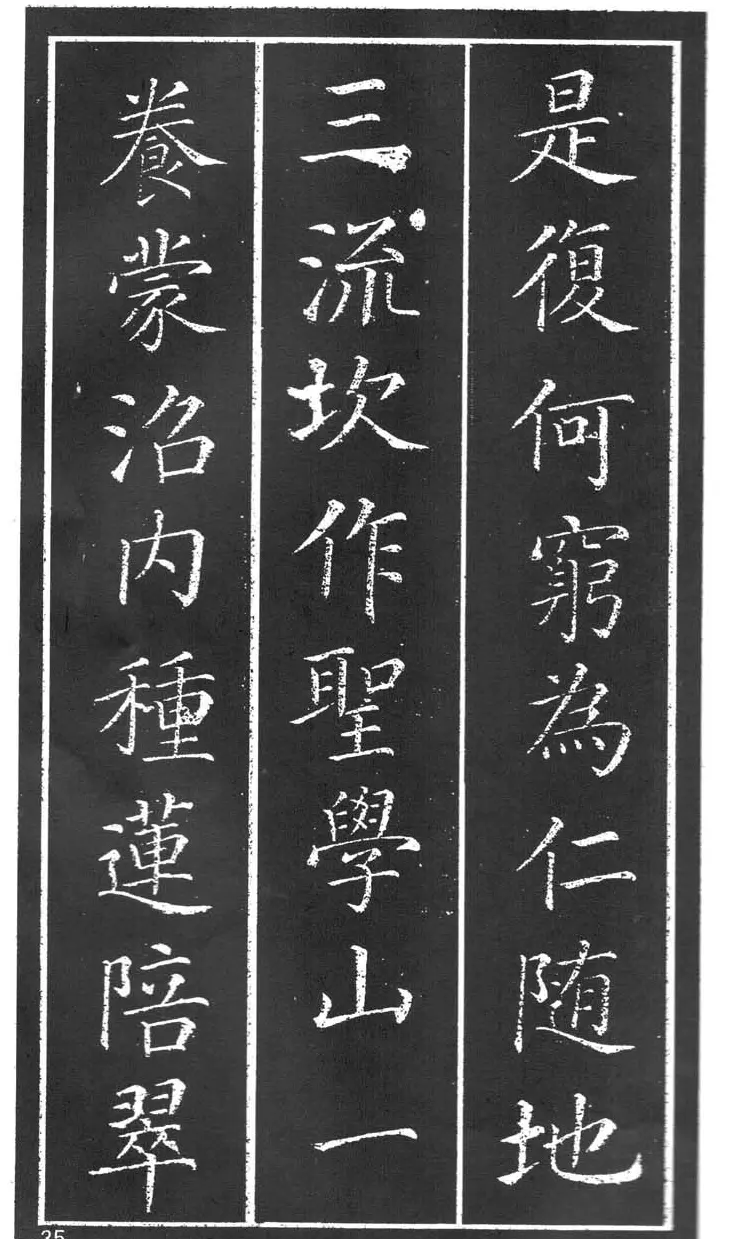 是復何窮為仁随地
三流坎作聖學山一
養蒙沼内種蓮陪翠